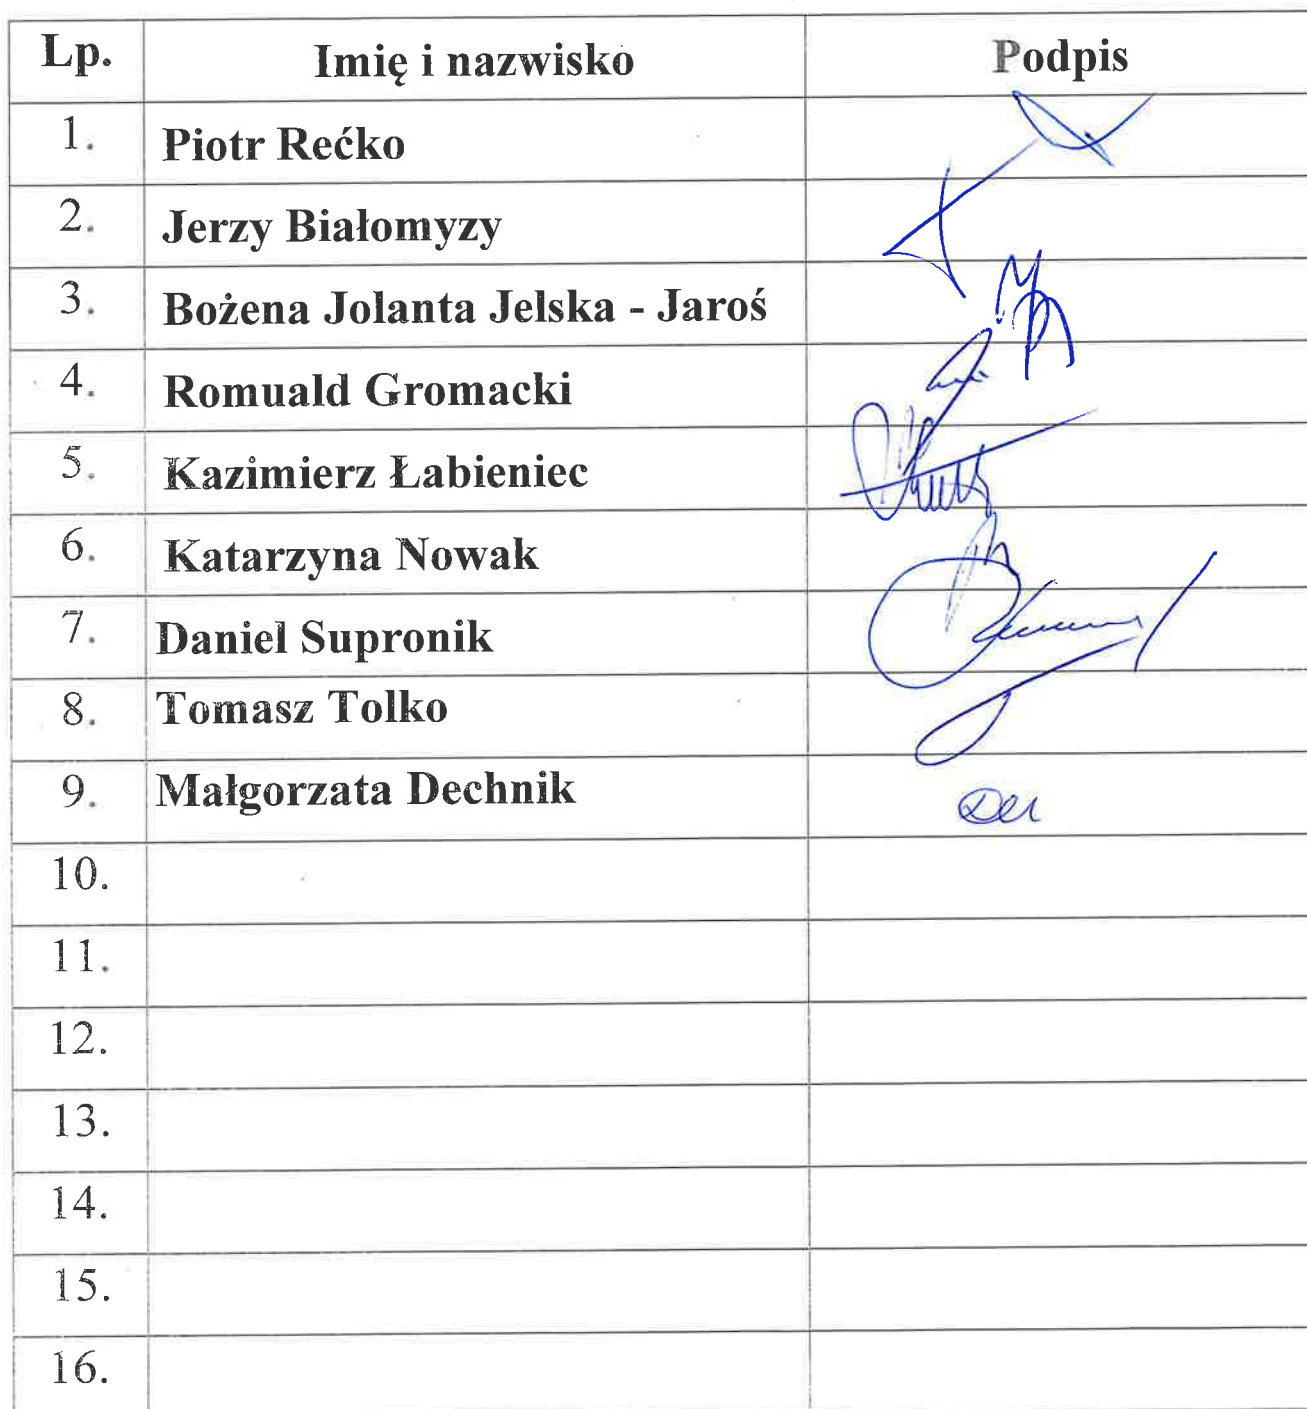 Lp. Imię i nazwisko Podpis
1. Piotr Rećko
2. Jerzy Białomyzy
3. Bożena Jolanta Jelska - Jaroś
4. Romuald Gromacki
5. Kazimierz Łabieniec
6. Katarzyna Nowak
7. Daniel Supronik
8. Tomasz Tolko
9. Małgorzata Dechnik
10.
11.
12.
13.
14.
15.
16.